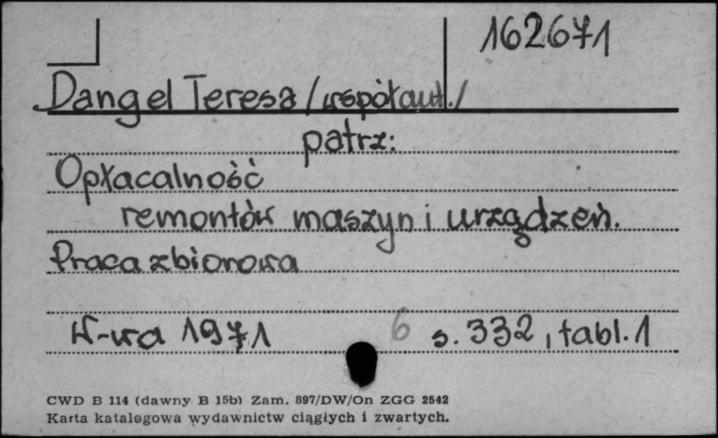 162671
Dangel Teresa /współaut./
patrz:
Opłacalność
remontów maszyn i urządzeń.
Praca zbiorowa
W-wa 1971 6 s. 332, tabl. 1
CWD B 114 (dawny B 15b) Zam. 897/DW/On ZGG 2542
Karta katalogowa wydawnictw ciągłych i zwartych.